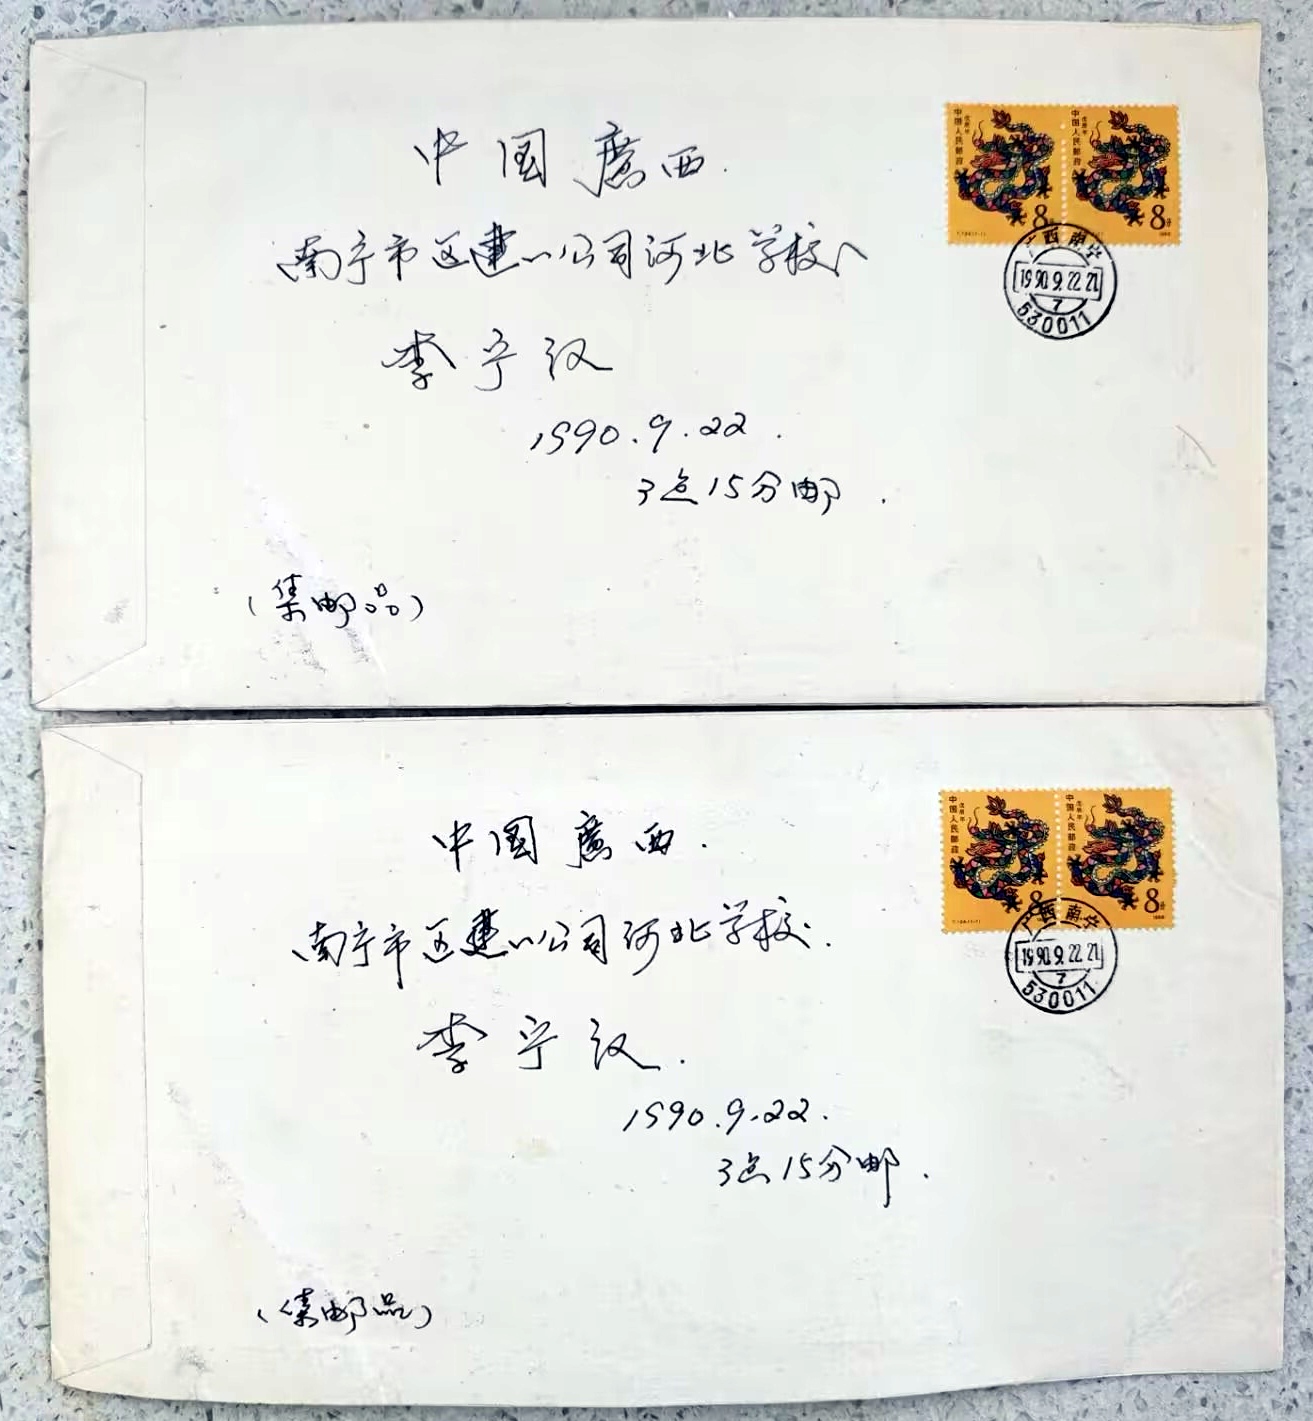 中国廣西.
南宁市区建八公司河北学校
李宁汉
1990.9.22.
3点15分邮.
(集邮品)
中国人民邮政
戊辰年
8分
中国人民邮政
戊辰年
8分
1988
广西南宁
1990.9.22.21
7
530011
中国廣西.
南宁市区建八公司河北学校.
李宁汉.
1990.9.22.
3点15分邮.
(集邮品)
中国人民邮政
戊辰年
8
中国人民邮政
戊辰年
8分
1988
广西南宁
1990.9.22.21
7
530011